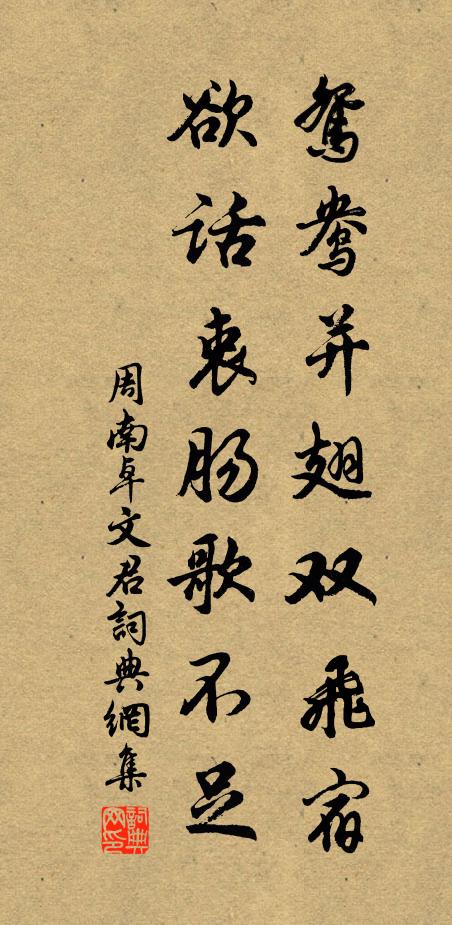 鸳鸯并翅双飞宿
欲话衷肠歌不足
周南卓文君詞典網集
詞典網印